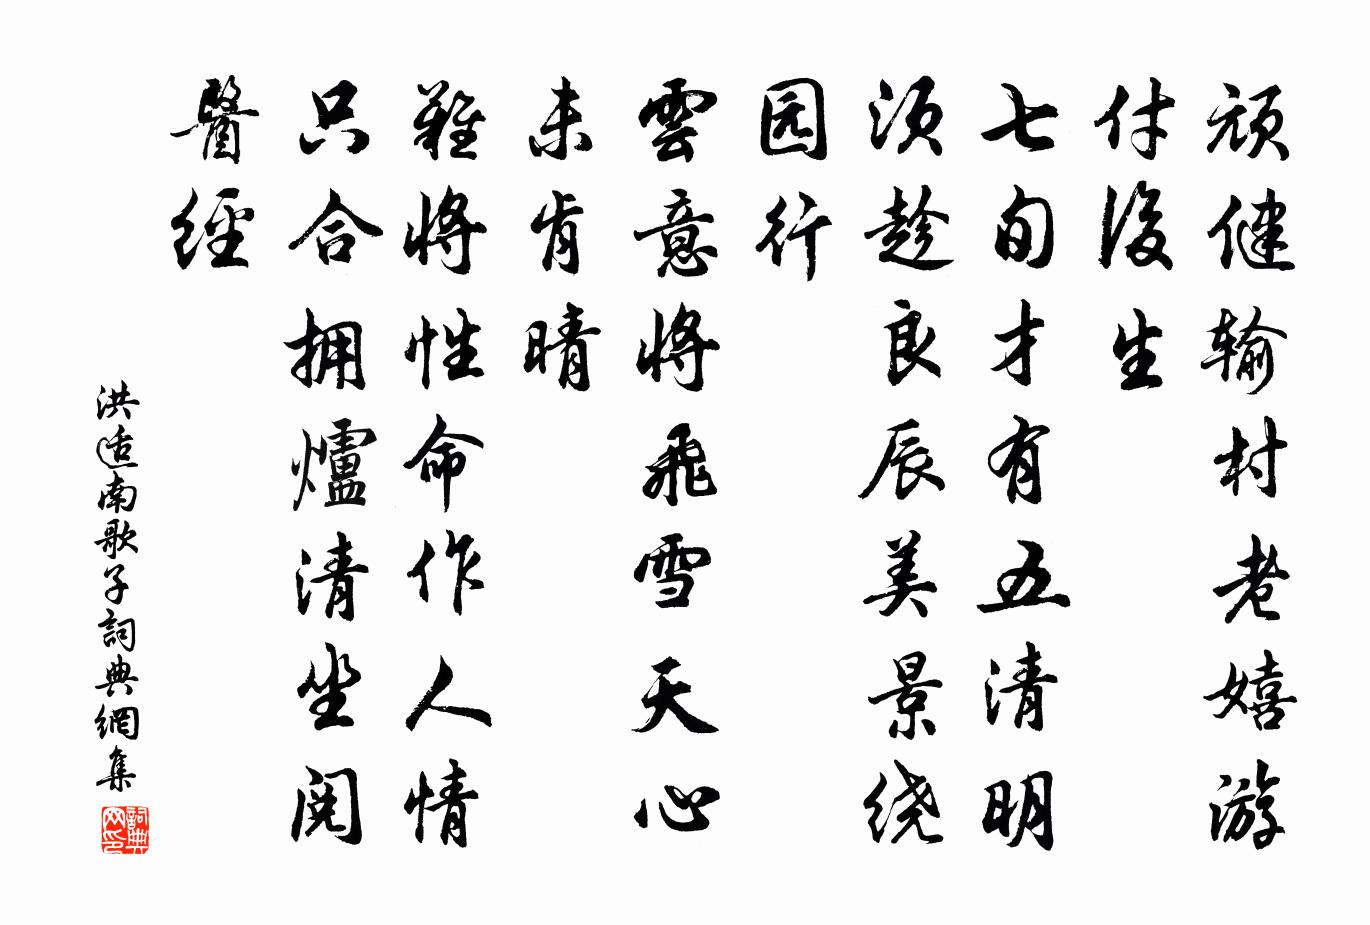 顽健输村老嬉游
付後生
七旬才有五清明
须趁良辰美景绕
园行
雲意將飛雪天心
未肯晴
難將性命作人情
只合拥爐清坐阅
醫經
洪适南歌子詞典網集
詞典网印